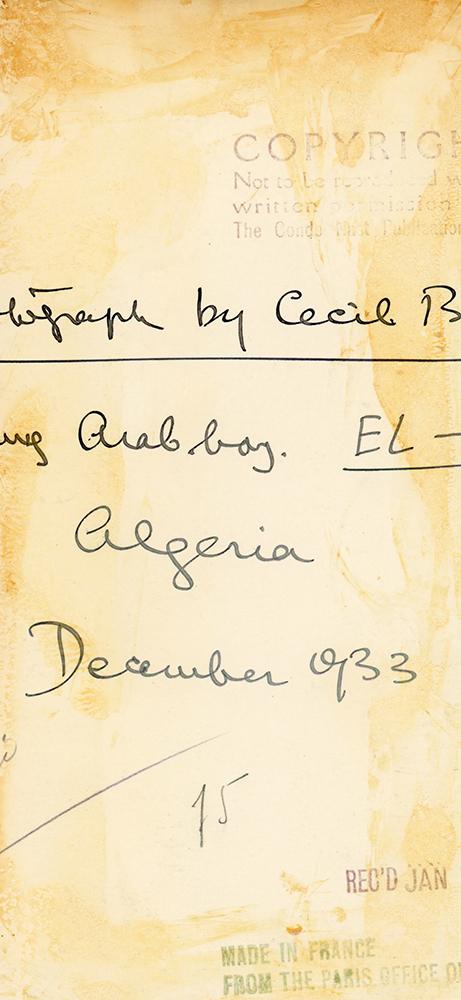 COPYRIGH
Not to be reproduced w
written permission
The Condé Nast Publication
tograph by Cecil B
ung Arab boy. EL -
Algeria
December 1933
15
REC'D JAN
MADE IN FRANCE
FROM THE PARIS OFFICE O